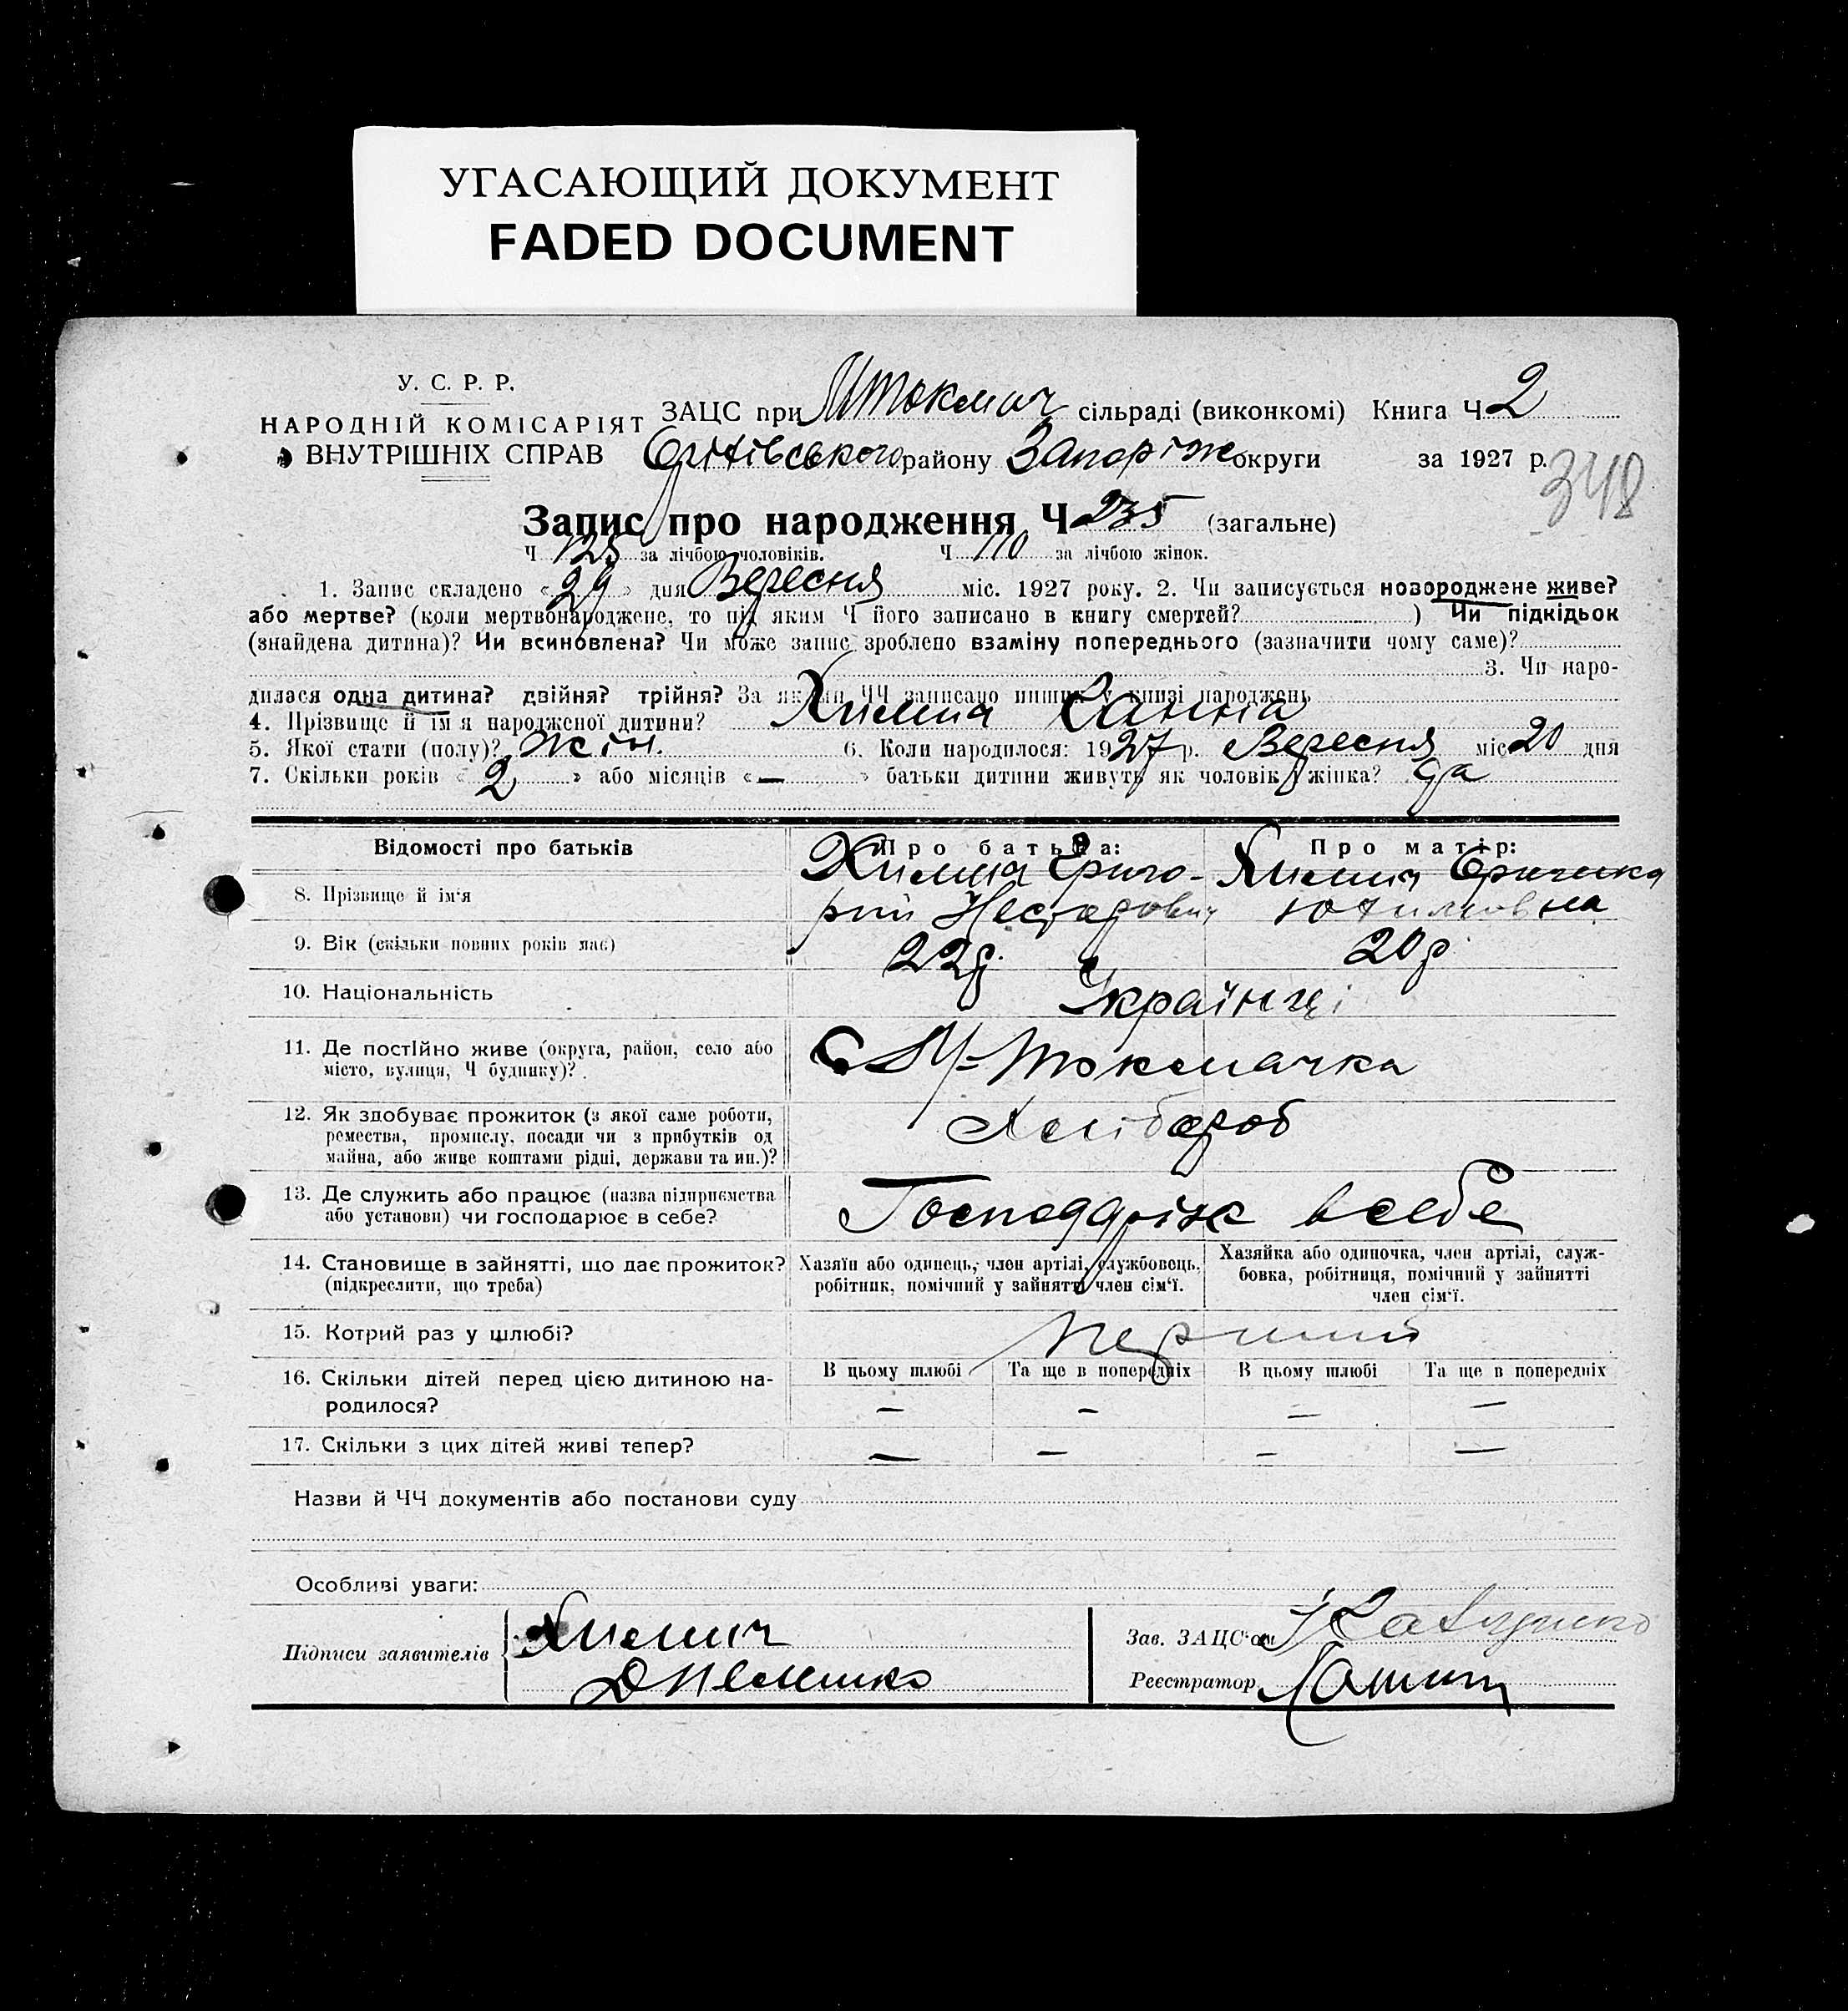 УГАСАЮЩИЙ ДОКУМЕНТ
FADED DOCUMENT
У. С. Р. Р.
НАРОДНІЙ КОМІСАРІЯТ
ВНУТРІШНІХ СПРАВ
ЗАЦС при М Токмач сільраді (виконкомі) Книга Ч 2
Оріхівського району Запоріж округи за 1927 р.
348
Запис про народження Ч 235 (загальне)
Ч 125 за лічбою чоловіків. Ч 110 за лічбою жінок.
1. Запис складено « 29 » дня Вересня міс. 1927 року. 2. Чи записується новороджене живе?
або мертве? (коли мертвонароджене, то під яким Ч його записано в книгу смертей? ) Чи підкідьок
(знайдена дитина)? Чи всиновлена? Чи може запис зроблено взаміну попереднього (зазначити чому саме)?
3. Чи наро-
дилася одна дитина? двійня? трійня? За якими ЧЧ записано инших у книзі народжень
4. Прізвище й ім'я народженої дитини? Ганна
5. Якої стати (полу)? жін. 6. Коли народилося: 1927 р. Вересня міс 20 дня
7. Скільки років « 2 » або місяців « — » батьки дитини живуть як чоловік і жінка? да
Відомості про батьків
Про батька:
Про матір:
8. Прізвище й ім'я
Григо-
рий Нестерович
9. Вік (скільки повних років має) 22р. 20р
10. Національність Українці
11. Де постійно живе (округа, район, село або
місто, вулиця, Ч будинку)?
С М-Токмачка
12. Як здобуває прожиток (з якої саме роботи,
ремества, промислу, посади чи з прибутків од
майна, або живе коштами рідні, держави та ин.)?
Хлібороб
13. Де служить або працює (назва підприємства
або установи) чи господарює в себе?
в себе
14. Становище в зайнятті, що дає прожиток?
(підкреслити, що треба)
Хазяїн або одинець, член артілі, службовець,
робітник, помічний у зайнятті член сім'ї.
Хазяйка або одиночка, член артілі, служ-
бовка, робітниця, помічний у зайнятті
член сім'ї.
15. Котрий раз у шлюбі? перший
16. Скільки дітей перед цією дитиною на-
родилося?
В цьому шлюбі Та ще в попередніх В цьому шлюбі Та ще в попередніх
— — — —
17. Скільки з цих дітей живі тепер? — — — —
Назви й ЧЧ документів або постанови суду
Особливі уваги:
Підписи заявителів
Зав. ЗАЦС'ом
Реєстратор